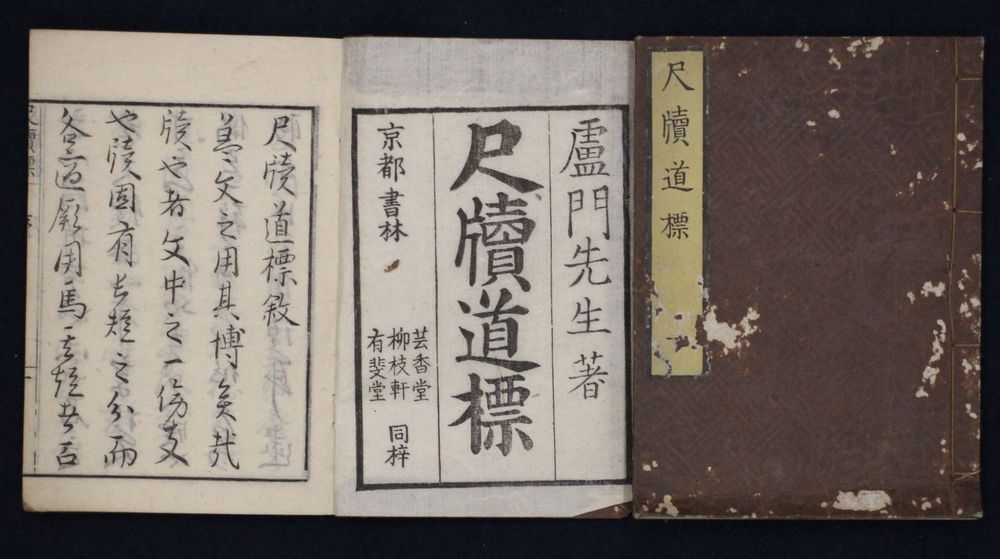 尺牘道標
盧門先生著
尺牘道標
京都書林
芸香堂
柳枝軒
有斐堂
同梓
尺牘道標敘
蓋文之用其博矣哉
牘也者文中之一傍支
也牘固有長短之分而
各適厥用焉
尺牘標